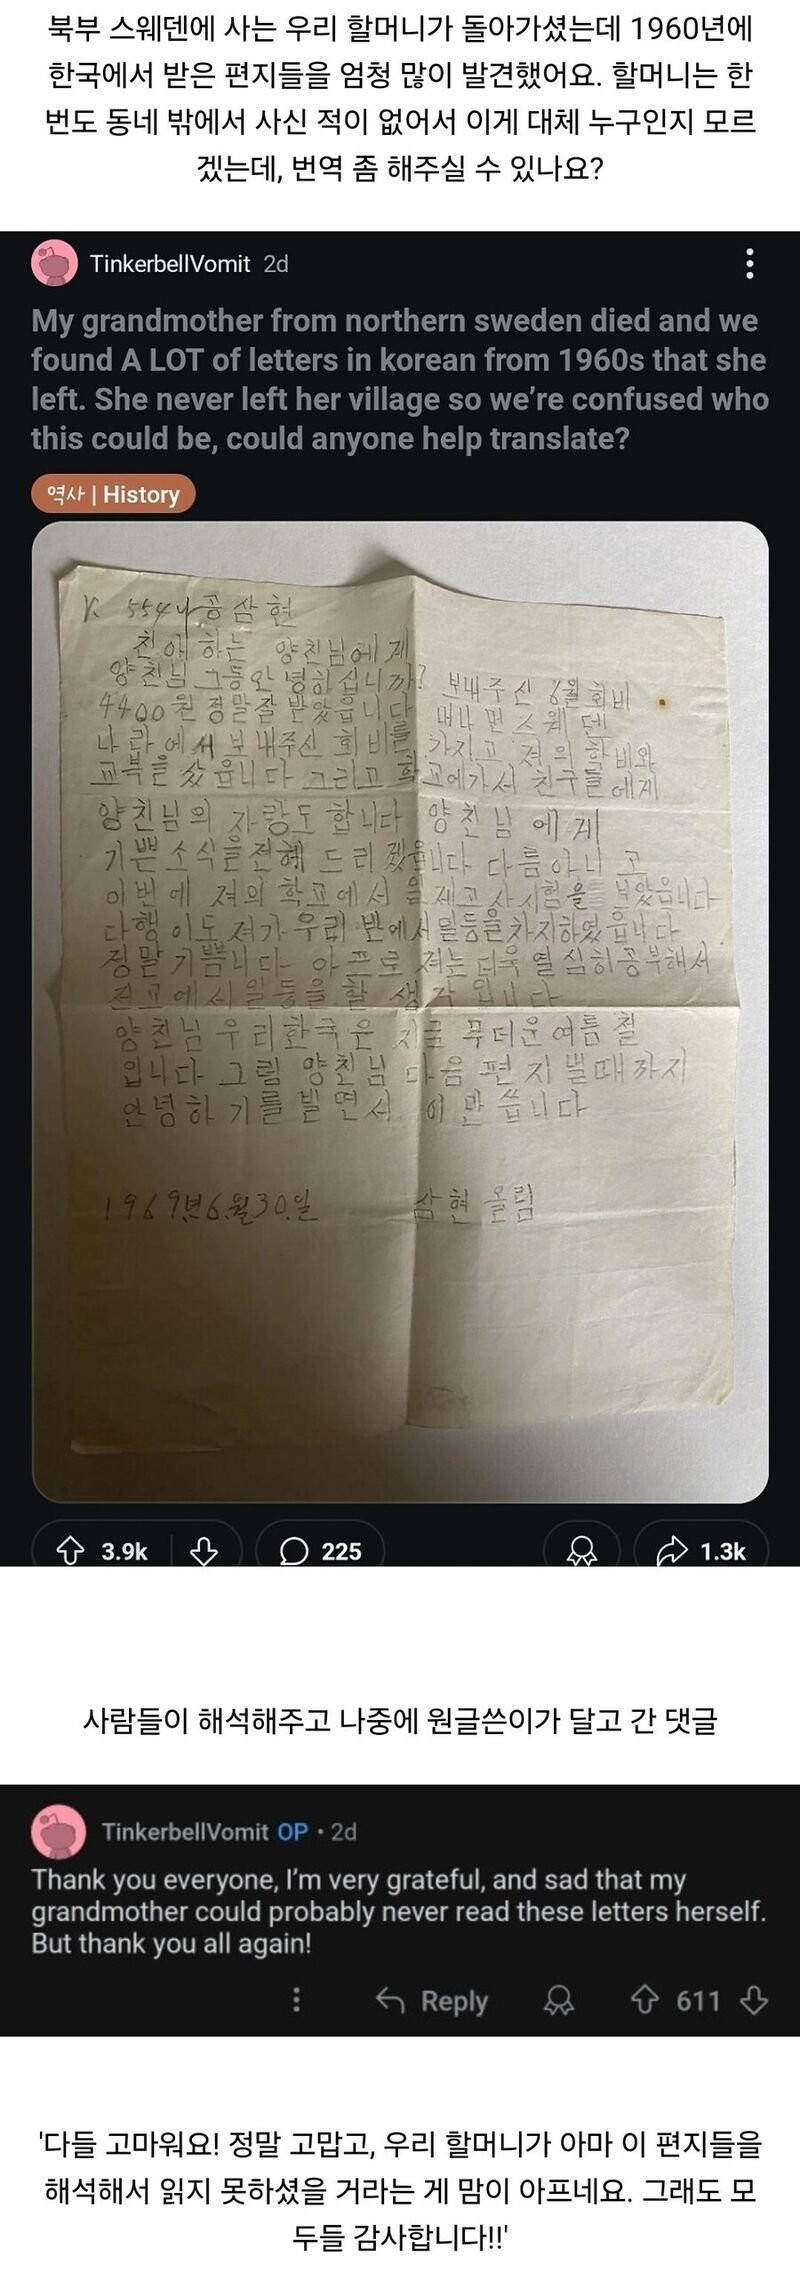 북부 스웨덴에 사는 우리 할머니가 돌아가셨는데 1960년에
한국에서 받은 편지들을 엄청 많이 발견했어요. 할머니는 한
번도 동네 밖에서 사신 적이 없어서 이게 대체 누구인지 모르
겠는데, 번역 좀 해주실 수 있나요?
TinkerbellVomit 2d
My grandmother from northern sweden died and we
found A LOT of letters in korean from 1960s that she
left. She never left her village so we're confused who
this could be, could anyone help translate?
역사 | History
K. 554 공삼현
친애하는 양친님에게
양친님 그동안 녕히십니까? 보내주신 6월 회비
4400원 정말잘 받았읍니다 머나먼스웨덴
나라에서 보내주신 회비를 가지고 져의 학비와
교북을 샀읍니다 그리고 학교에가서 친구들에게
양친님의 자랑도 합니다 양친님에게
기쁜소식을전헤 드리겠읍니다 다름아니고
이번에 져의 학교에서 일제고사시험을 보았읍니다
다행이도 져가 우리 반에서 일등을차지하였읍니다
정말기쁨니다 아프로 져는 더욱열심히공부해서
전교에서일등을할 생각입니다
양친님 우리한국은 지금 무더운여름철
입니다 그럼 양친님 다음편지쓸때까지
안녕하기를 빌면서 이만 씁니다
1969년6월30일 삼현 올림
3.9k 225 1.3k
사람들이 해석해주고 나중에 원글쓴이가 달고 간 댓글
TinkerbellVomit OP • 2d
Thank you everyone, I'm very grateful, and sad that my
grandmother could probably never read these letters herself.
But thank you all again!
Reply 611
'다들 고마워요! 정말 고맙고, 우리 할머니가 아마 이 편지들을
해석해서 읽지 못하셨을 거라는 게 맘이 아프네요. 그래도 모
두들 감사합니다!!'